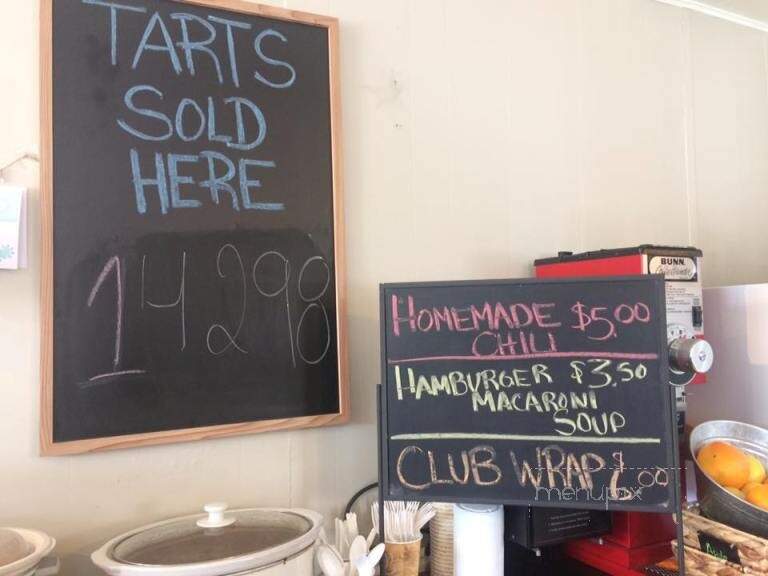 TARTS
SOLD
HERE
14298
BUNN
HOMEMADE $5.00
CHILI
HAMBURGER $3.50
MACARONI
SOUP
CLUB WRAP
menupix